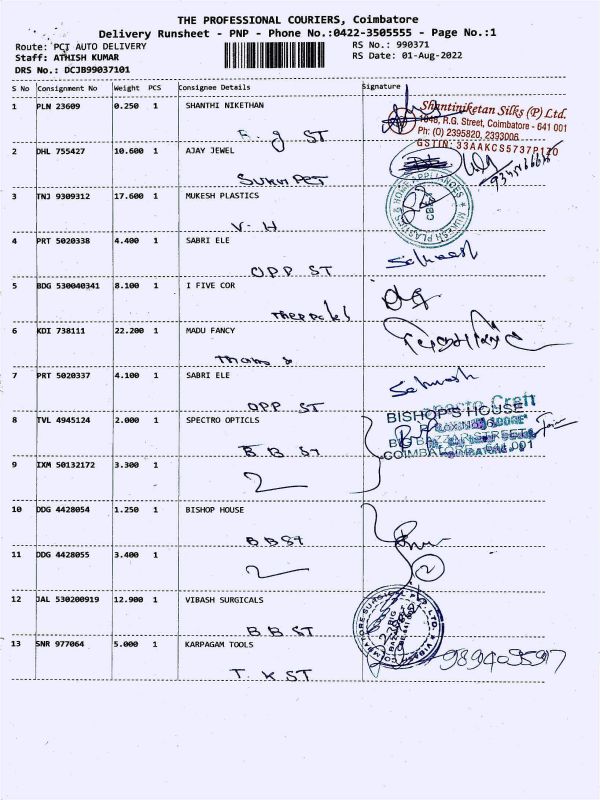 THE PROFESSIONAL COURIERS, Coimbatore
Delivery Runsheet - PNP - Phone No.:0422-3505555 - Page No.:1
Route: PCT AUTO DELIVERY RS No.: 990371
Staff: ATHISH KUMAR RS Date: 01-Aug-2022
DRS No.: DCJB99037101
S No Consignment No Weight PCS Consignee Details Signature
1 PLN 23609 0.250 1 SHANTHI NIKETHAN
Shantiniketan Silks (P) Ltd.
R.G. Street, Coimbatore - 641 001
Ph: (O) 2395820, 2393006
GSTIN: 33AAKCS5737P1Z0
R. g ST
2 DHL 755427 10.600 1 AJAY JEWEL
SUKH PET
3 TNJ 9309312 17.600 1 MUKESH PLASTICS
MUKESH PLASTICS & HOME APPLIANCES
CBE-1
V. H
4 PRT 5020338 4.400 1 SABRI ELE
OPP ST
5 BDG 530040341 8.100 1 I FIVE COR
6 KDI 738111 22.200 1 MADU FANCY
7 PRT 5020337 4.100 1 SABRI ELE
OPP ST
8 TVL 4945124 2.000 1 SPECTRO OPTICLS
BISHOP'S HOUSE
BIG BAZAAR STREET
COIMBATORE - 641 001
B B ST
9 IXM 50132172 3.300 1
10 DDG 4428054 1.250 1 BISHOP HOUSE
B B ST
11 DDG 4428055 3.400 1
2
12 JAL 530200919 12.900 1 VIBASH SURGICALS
B B ST
13 SNR 977064 5.000 1 KARPAGAM TOOLS
T. K ST